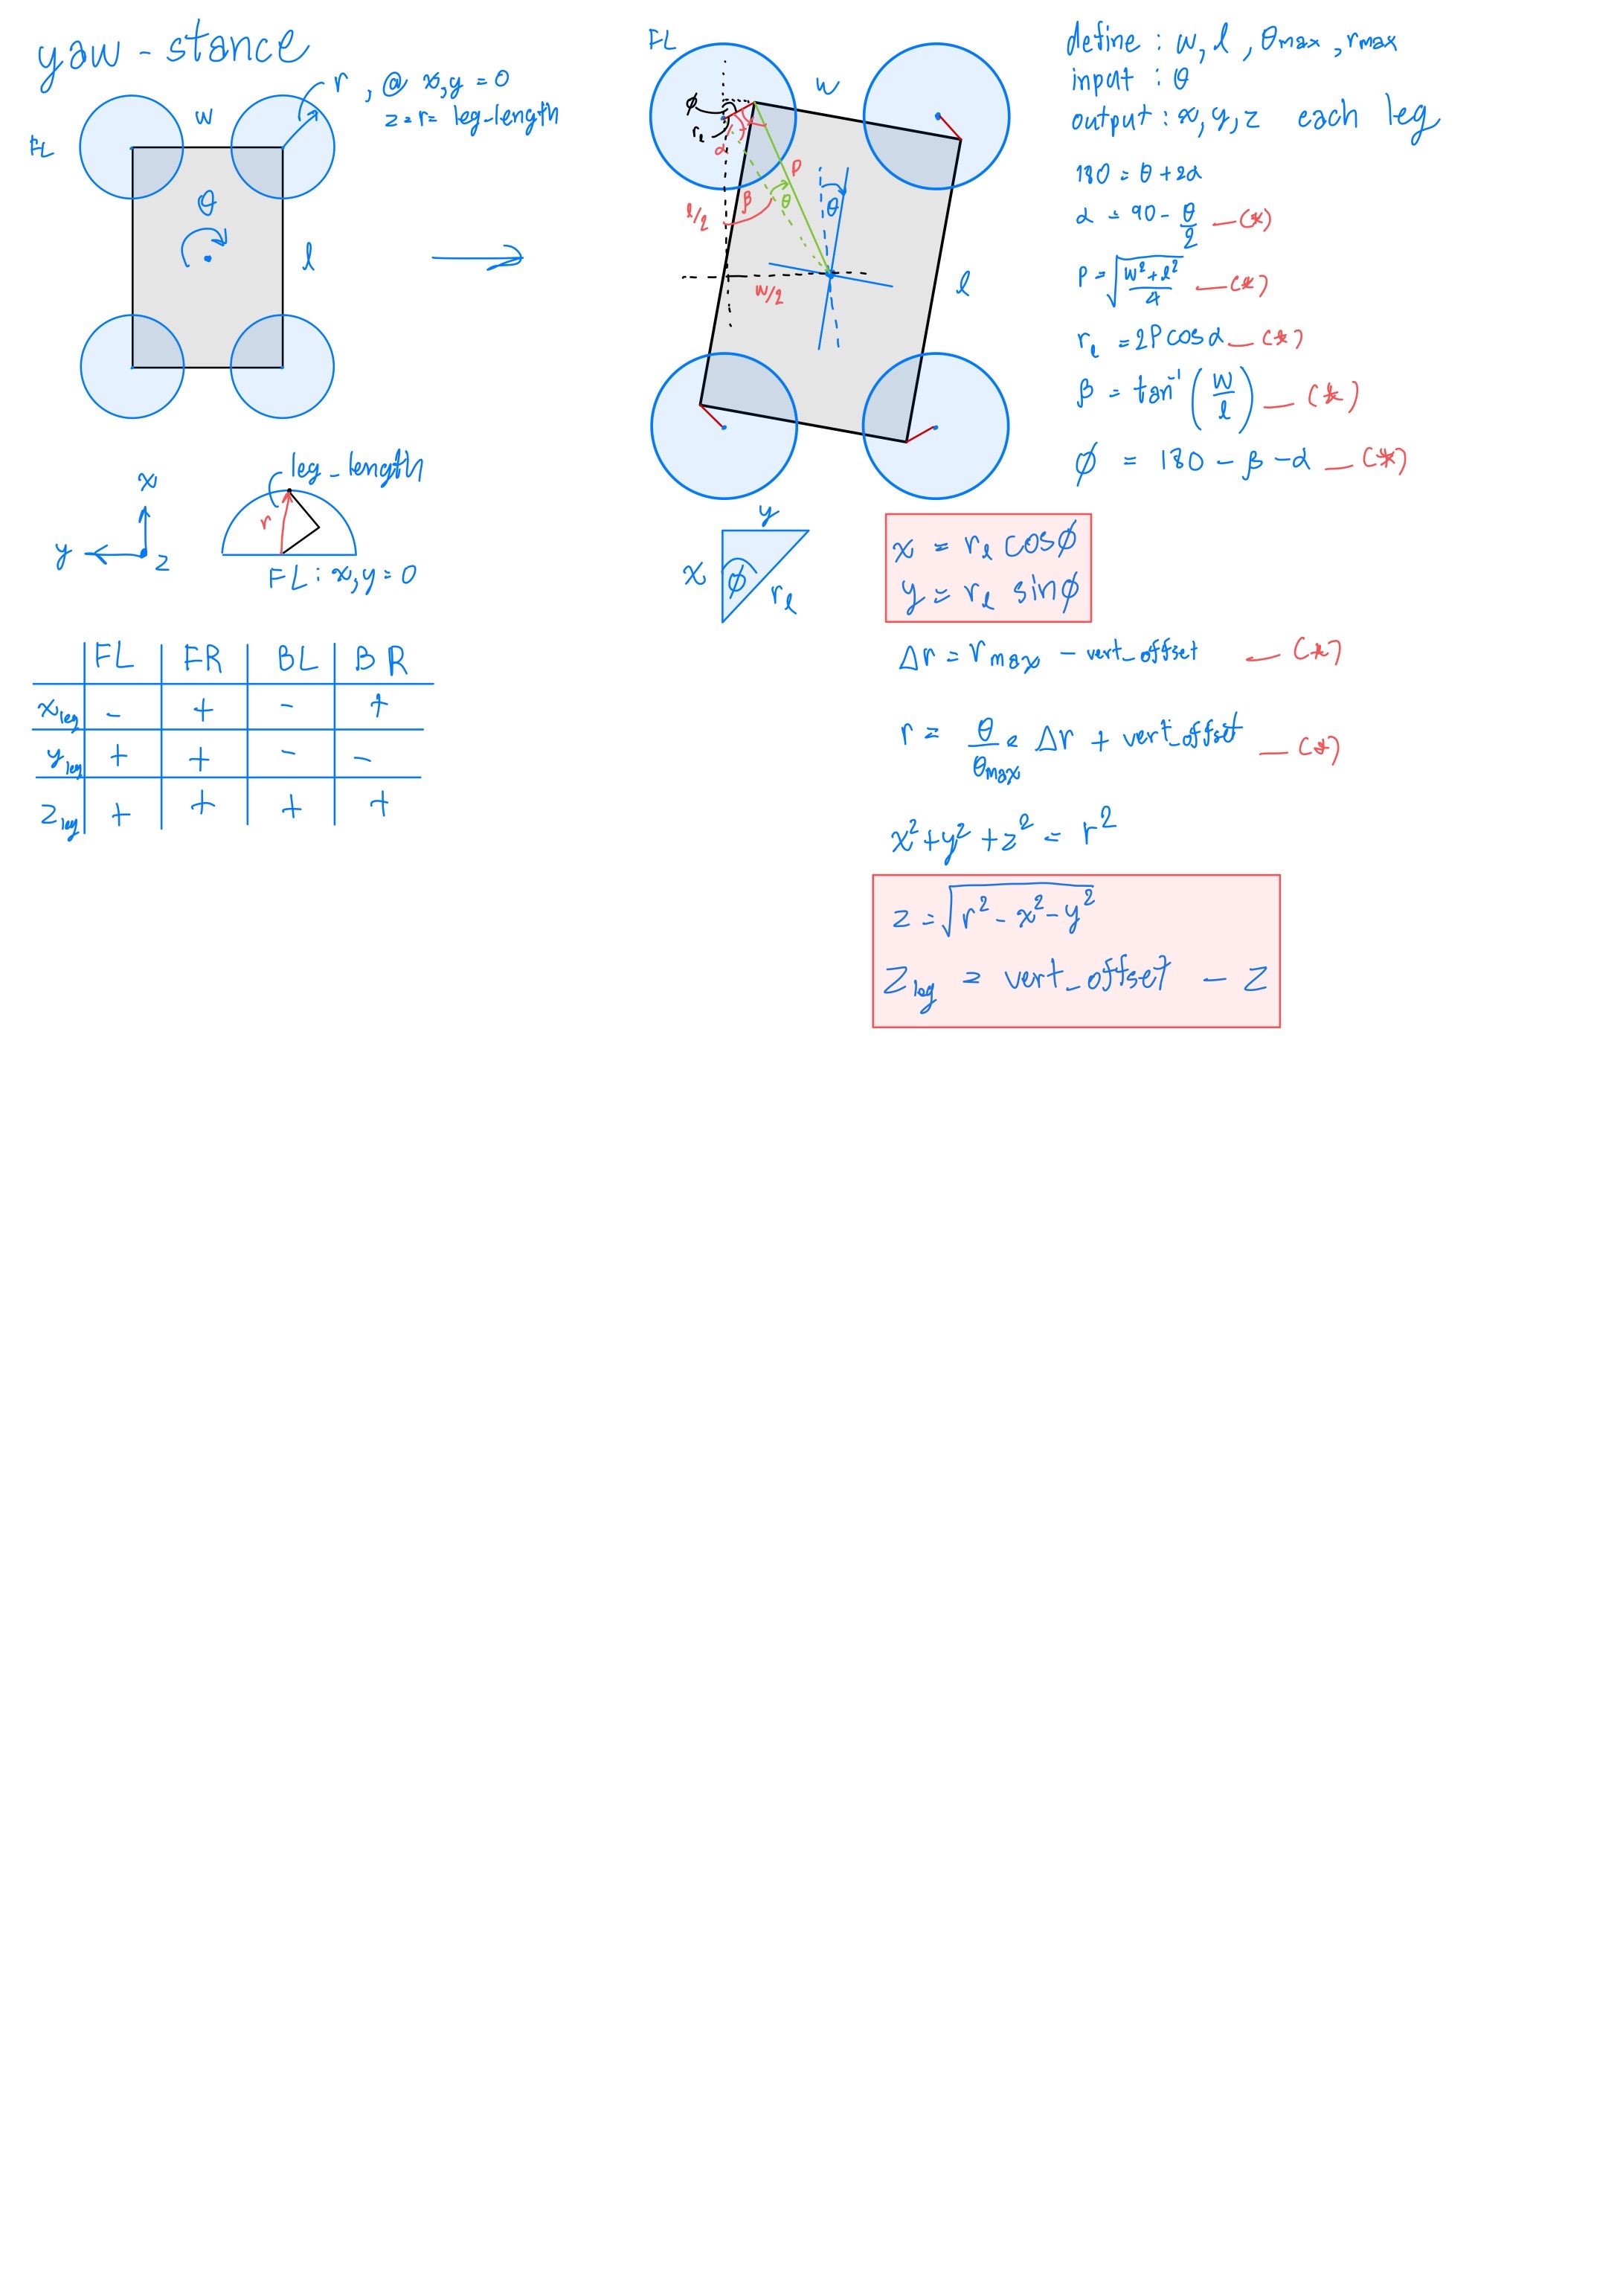 yaw-stance
r, @ x,y = 0
z = r = leg-length
w
FL
θ
l
x
y
z
leg-length
r
FL : x,y = 0
FL FR BL BR
x leg - + - +
y leg + + - -
z leg + + + +
FL
w
ϕ
r_l
α
P
β
θ
θ
l/2
w/2
l
define : w, l, θmax, rmax
input : θ
output : x, y, z each leg
180 = θ + 2α
α = 90 - θ/2 —(*)
P = √((w² + l²)/4) —(*)
r_l = 2P cosα —(*)
β = tan⁻¹(w/l) —(*)
ϕ = 180 - β - α —(*)
y
x
ϕ
r_l
x = r_l cosϕ
y = r_l sinϕ
Δr = rmax - vert_offset —(*)
r = θ/θmax • Δr + vert_offset —(*)
x² + y² + z² = r²
z = √(r² - x² - y²)
z leg = vert_offset - z